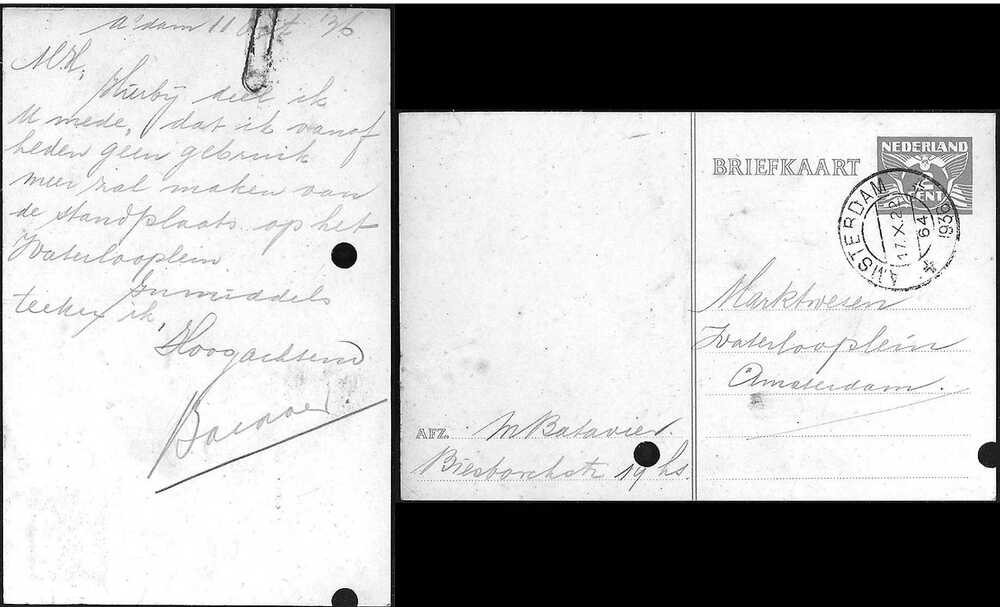 A'dam 11 Oct '36
M.H,
Hierbij deel ik
U mede, dat ik vanaf
heden geen gebruik
meer zal maken van
de standplaats op het
Waterlooplein
Inmiddels
teeken ik,
Hoogachtend
BRIEFKAART
NEDERLAND
CENT
AMSTERDAM
17.X.2
1936
Marktwesen
Waterlooplein
Amsterdam.
AFZ. M Batavier
19 hs.